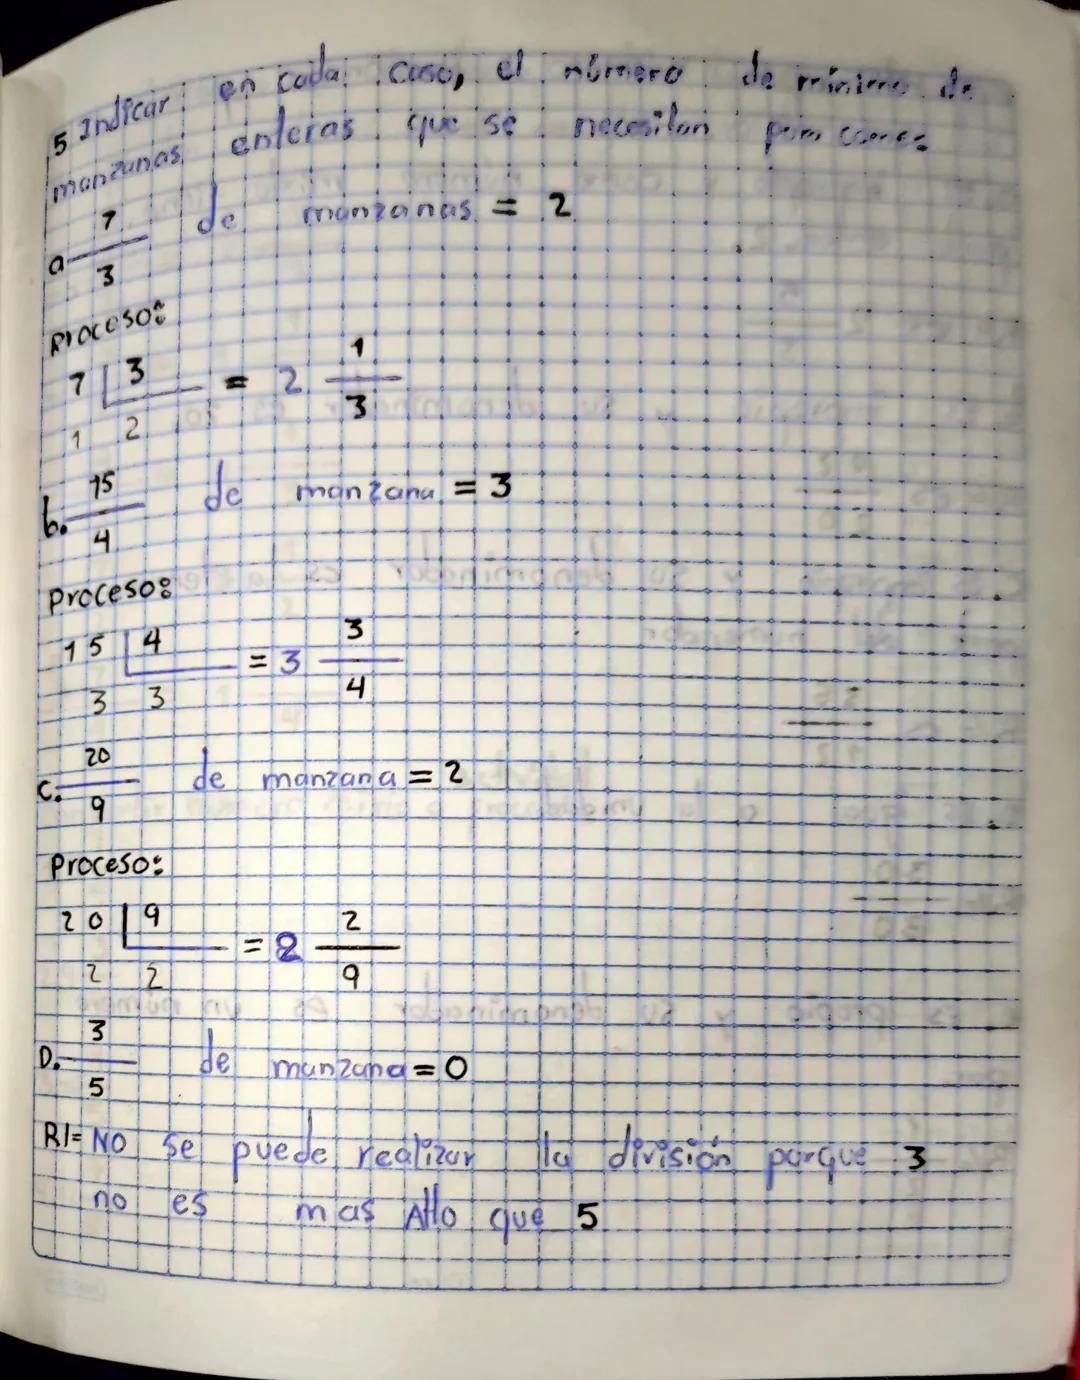 5 Indicar en cada caso, el número de minimo de
manzanas enteras que se necesitan para comer
a 7/3 de manzanas = 2
Proceso:
7 | 3 = 2 1/3
1 2
b. 15/4 de manzana = 3
Proceso:
15 | 4 = 3 3/4
3 3
c. 20/9 de manzana = 2
Proceso:
20 | 9 = 2 2/9
2 2
D. 3/5 de manzana = 0
R/= NO se puede realizar la división porque 3
no es mas Alto que 5